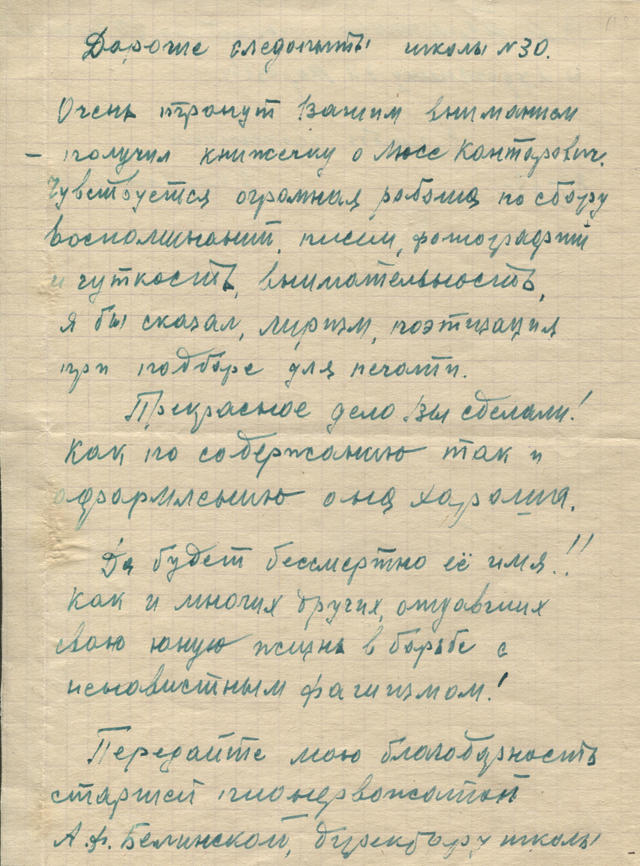 Дорогие следопыты школы №30.
Очень тронут Вашим вниманием
– получил книжечку о Люсе Канторович.
Чувствуется огромная работа по сбору
воспоминаний, писем, фотографий
и чуткость, внимательность,
я бы сказал, лиризм, поэтизация
при подборе для печати.
Прекрасное дело Вы сделали!
Как по содержанию так и
оформлению она хороша.
Да будет бессмертно её имя!!
Как и многих других, отдавших
свою юную жизнь в борьбе с
ненавистным фашизмом!
Передайте мою благодарность
старшей пионервожатой
А.Ф. Белинской, директору школы